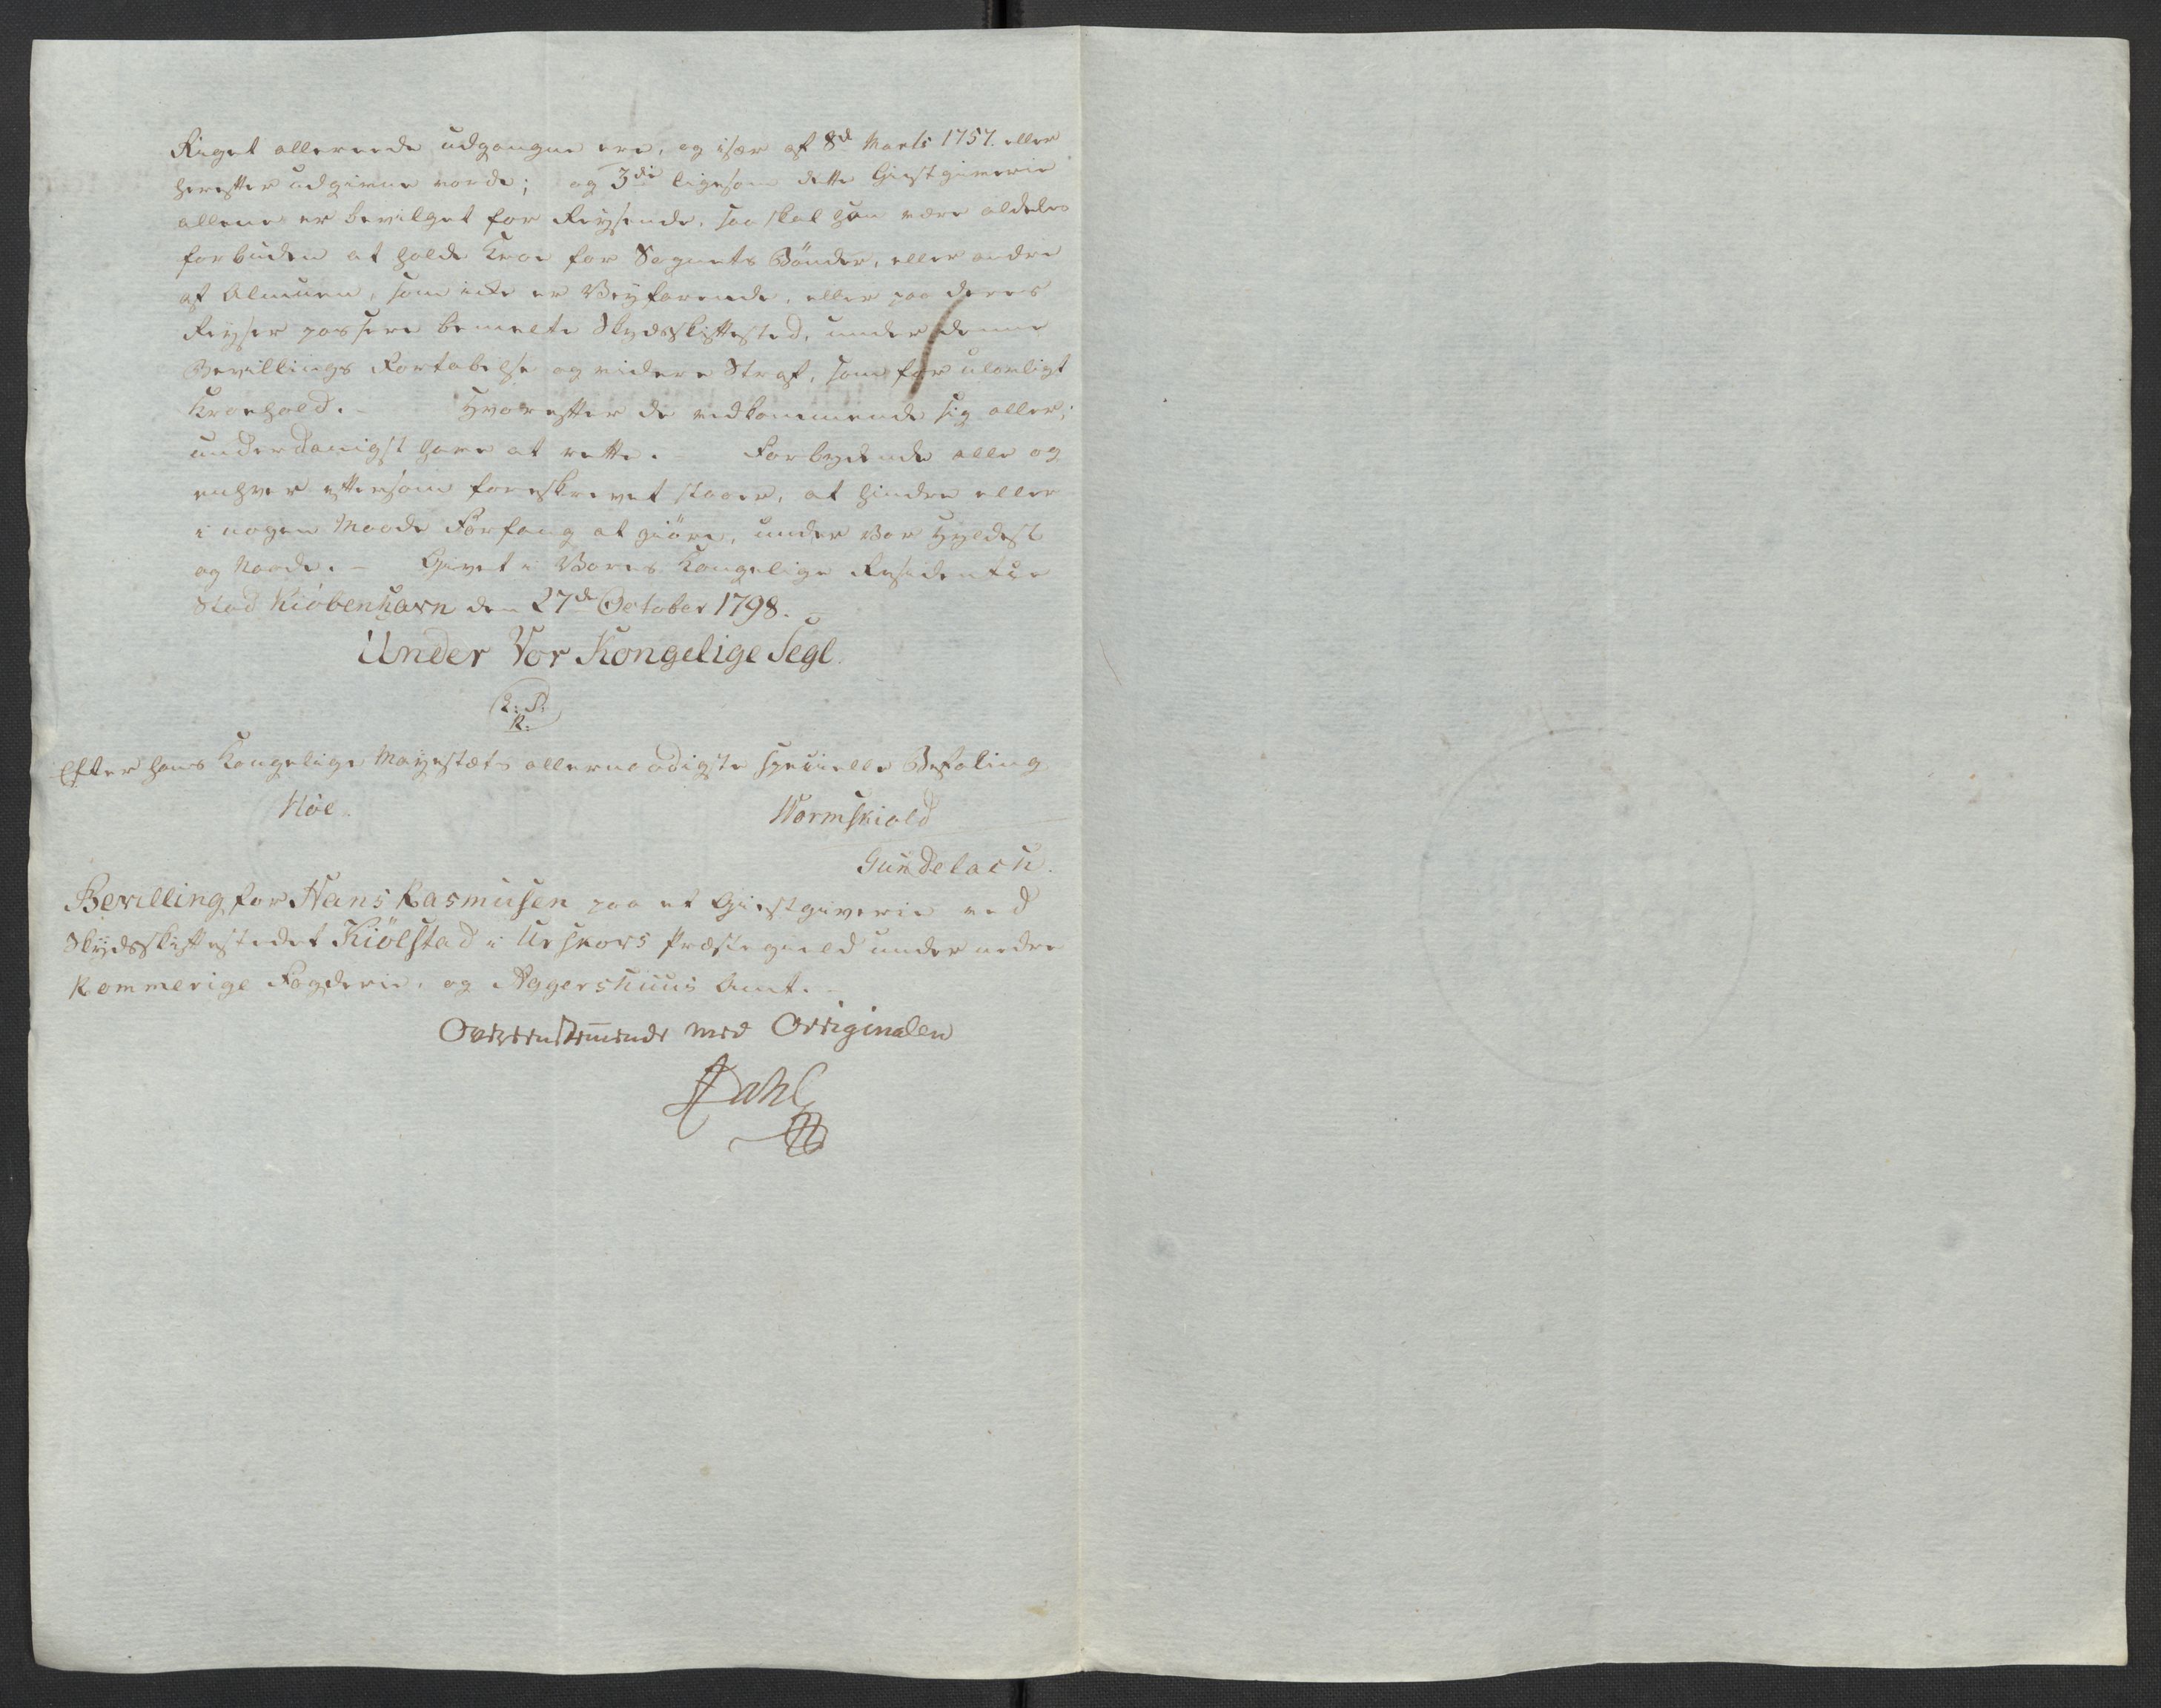 Riget allereede udgangne ere, og især af 8d Marti 1757. eller
herefter udgivne vorde; og 3di ligesom dette Giestgiverie
allene er bevilget for Reysende, saa skal han være aldeles
forbuden at holde Kroe for Sognets Bönder, eller andre
af Almuen, som icke er Veyfarende, eller paa deres
Reyser passere bemelte Skydsskiftested, under denne
Bevillings Fortabelse og videre Straf, som for ulovligt
Kroehold. - Hvorefter de vedkommende sig aller-
underdanigst have at rette. - Forbydende alle og
enhver eftersom foreskrevet staaer, at hindre eller
i nogen Maade Forfang at giöre, under Vor Hyldest
og Naade. - Givet i Vores Kongelige Residentze
Stad Kiöbenhavn den 27de October 1798.
Under Vor Kongelige Segl.
L: S:
R:
Efter hans Kongelige Mayestæts allernaadigste specielle Befaling
Höe. Wormskiold
Gundelach.
Bevilling for Hans Rasmusen paa et Giestgiverie ved
Skydsskiftestedet Kiölstad i Urskovs Præstegield under nedre
Rommerige Fogderie, og Aggershuus Amt.
Overeenstemende med Originalen
Dahl